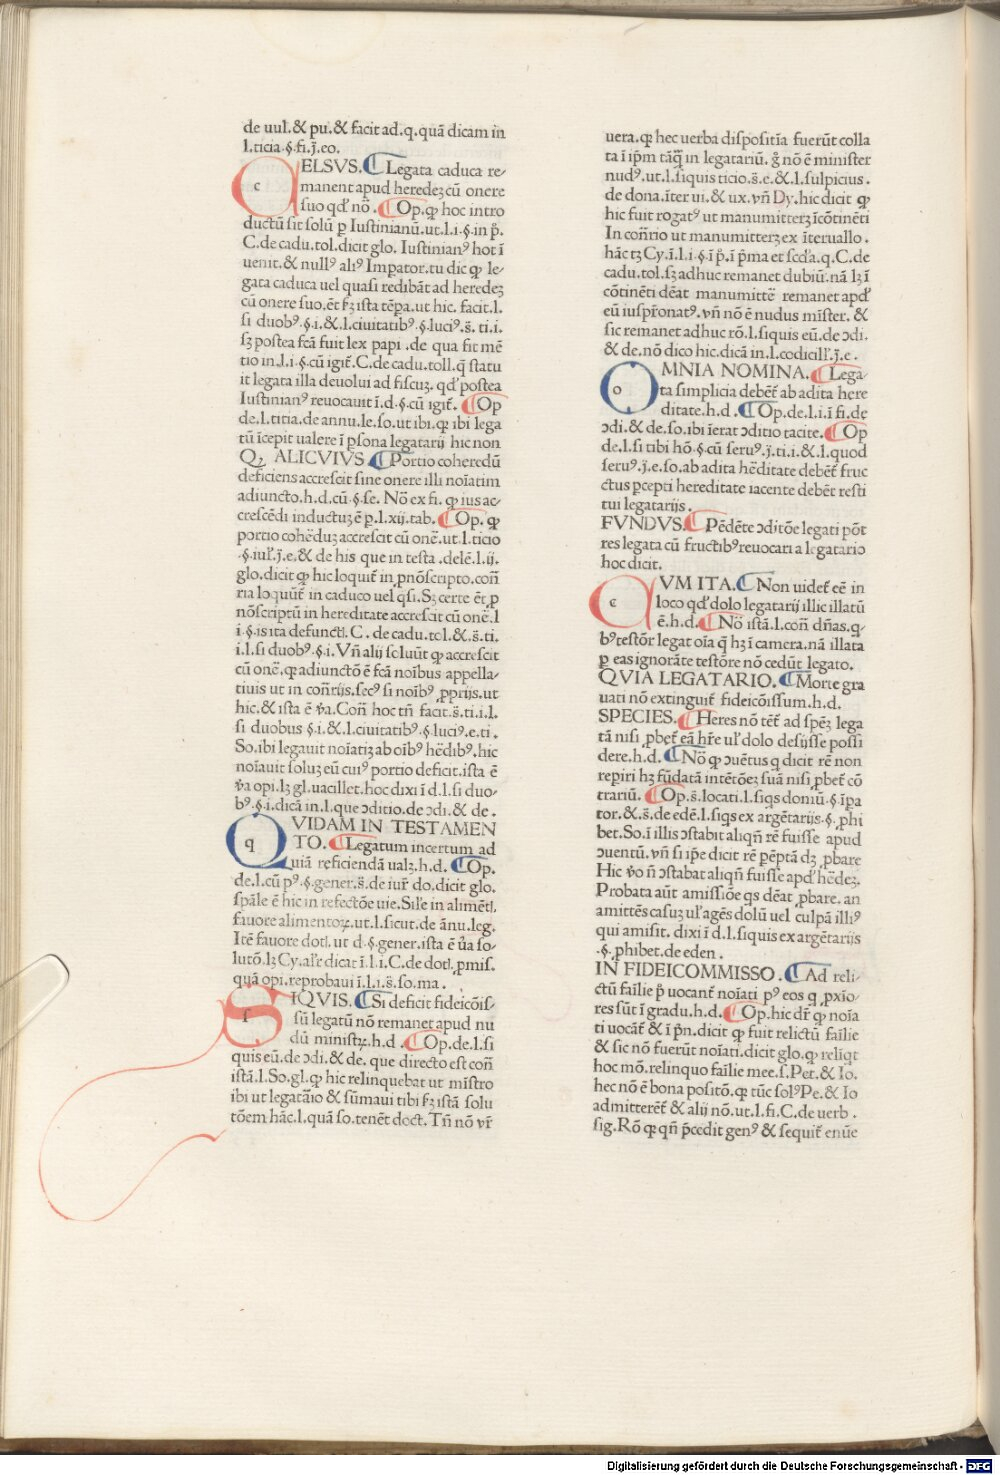 de uul̃.& pu.& facit ad.q.quã dicam in
l.ticia.§.fi.j̃.eo.
CELSVS.¶ Legata caduca re-
manent apud heredeʒ cũ onere
suo qd' nõ.¶ Op.ꝙ hoc intro
ductũ sit solũ p Iustinianũ.ut.l.i.§.in p̃.
C.de cadu.tol.dicit glo. Iustinianꝰ hot ĩ
uenit.& nullꝰ aliꝰ Imperator.tu dic ꝙ le-
gata caduca uel quasi redibãt ad heredeʒ
cũ onere suo.ẽt fʒ ista tẽpa.ut hic. facit.l.
si duobꝰ.§.i.&.l.ciuitatibꝰ.§.luciꝰ.s̃. ti.i.
sʒ postea fcã fuit lex papi .de qua fit mẽ
tio in.l.i.§.cũ igit̃.C.de cadu.toll.q̃ statu
it legata illa deuolui ad fiscuʒ. qd' postea
Iustinianꝰ reuocauit ĩ.d.§.cũ igit̃.¶ Op
de.l.titia.de annu.le.so.ut ibi.ꝙ ibi lega
tũ ĩcepit ualere ĩ ꝑsona legatarij hic non
Qꝫ ALICVIVS ¶ Portio coheredũ
deficiens accrescit sine onere illi noĩatim
adiuncto.h.d.cũ.§.se. Nõ ex fi. ꝙ ius ac-
crescẽdi inductuʒ ẽ p.l.xij.tab.¶ Op. ꝙ
portio cohẽduʒ accrescit cũ onẽ.ut.l.ticio
.§.iul̃.j̃.e.& de his que in testa .delẽ.l.ij.
glo.dicit ꝙ hic loquit̃ in p̱nõscripto.coñ
ria loquũt̃ in caduco uel q̃si.Sʒ certe ẽt p̱
nõscriptũ in hereditate accrescit cũ onẽ.l
i.§.is ita defuncti. C. de cadu.tol.&.s̃.ti.
i.l.si duobꝰ.§.i.Vñ alij soluũt ꝙ accrescit
cũ onẽ.ꝙ adiunctõ ẽ fcã noĩbus appella-
tiuis ut in coñrijs.secꝰ si noĩbꝰ ꝓprijs.ut
hic.& ista ẽ ṽa.Coñ hoc tñ facit.s̃.ti.i.l.
si duobus §.i.&.l.ciuitatibꝰ.§.luciꝰ.e.ti.
So.ibi legauit noĩatiʒ ab oĩbꝰ hẽdibꝰ.hic
noĩauit soluʒ eũ cuiꝰ portio deficit.ista ẽ
ṽa opi.lʒ gl.uacillet.hoc dixi ĩ d.l.si duo-
bꝰ.§.i.dicã in.l.que ↄditio.de ↄdi.& de.
QVIDAM IN TESTAMEN
TO.¶ Legatum incertum ad
uiã reficiendã ualʒ.h.d.¶ Op.
de.l.cũ pꝰ.§.gener.s̃.de iur̃ do.dicit glo.
sp̃ale ẽ hic in refectõe uie.Sil̃e in alimẽtꝭ.
fauore alimentoꝝ.ut.l.sicut.de ãnu.leg.
Itẽ fauore dotꝭ. ut d.§.gener.ista ẽ ũa so-
lutõ.lʒ Cy.al̃r dicat ĩ.l.i.C.de dotꝭ.ꝓmis.
quã opi.reprobaui ĩ.l.i.s̃.so.ma .
SIQVIS.¶ Si deficit fideicõis-
sũ legatũ nõ remanet apud nu
dũ ministꝝ.h.d .¶ Op.de.l.si
quis eũ.de ↄdi.& de. que directo est coñ
istã.l.So.gl.ꝙ hic relinquebat ut mĩstro
ibi ut legatãio & sũmaui tibi fʒ istã solu
tõem hãc.l.quã so.tenẽt doct. Tñ nõ vr̃
uera.ꝙ hec uerba dispositĩa fuerũt colla
ta ĩ ip̃m tãq̃ in legatariũ. g̃ nõ ẽ minister
nudꝰ.ut.l.siquis ticio.s̃.e.&.l.sulpicius.
de dona.ĩter ui.& ux.vñ Dy.hic dicit ꝙ
hic fuit rogatꝰ ut manumitterʒ ĩcõtinẽti
In coñrio ut manumitterʒ ex ĩteruallo.
hãc tʒ Cy.ĩ.l.i.§.ĩ p̃.ĩ p̃ma et scd'a.q.C.de
cadu.tol.sʒ adhuc remanet dubiũ.nã lʒ ĩ
cõtinẽti dẽat manumittẽ remanet apd'
eũ iusp̃ronatꝰ.vñ nõ ẽ nudus mĩster. &
sic remanet adhuc rõ.l.siquis eũ.de ↄdi.
& de.nõ dico hic.dicã in.l.codicill̃.j̃.e .
OMNIA NOMINA.¶ Lega-
ta simplicia debẽt̃ ab adita here
ditate.h.d.¶ Op.de.l.i.ĩ fi.de
ↄdi.& de.so.ibi ĩerat ↄditio tacite.¶ Op
de.l.si tibi hõ.§.cũ seruꝰ.j̃.ti.i.&.l.quod
seruꝰ.j̃.e.so.ab adita hẽditate debẽt̃ fruc
ctus ꝑcepti hereditate iacente debẽt resti
tui legatarijs.
FVNDVS.¶ Pẽdẽte ↄditõe legati põt
res legata cũ fructibꝰ reuocari a legatario
hoc dicit.
CVM ITA.¶ Non uidet̃ eẽ in
loco qd' dolo legatarij illic illatũ
ẽ.h.d.¶ Nõ istã.l.coñ dñas.q-
bꝰ testõr legat oĩa q̃ hʒ ĩ camera.nã illata
ꝑ eas ignorãte testõre nõ cedũt legato.
QVIA LEGATARIO.¶ Morte gra
uati nõ extinguit̃ fideicõissum.h.d.
SPECIES.¶ Heres nõ tẽt̃ ad spẽʒ lega
tã nisi ꝓbet̃ eã hr̃e ul' dolo desijsse possi
dere.h.d.¶ Nõ ꝙ ↄuẽtus q dicit rẽ non
reꝑiri hʒ fũdatã intẽtõeʒ suã nisi ꝓbet̃ cõ
trariũ.¶ Op.s̃.locati.l.siq̃s doniũ.§.ĩpa
tor.&.s̃.de edẽ.l.siq̃s ex argẽtarijs.§.ꝓhi
bet.So.ĩ illis ↄstabit aliqñ rẽ fuisse apud
ↄuentũ.vñ si ip̃e dicit rẽ ꝑẽptã dʒ ꝓbare
Hic ṽo ñ ↄstabat aliqñ fuisse apd' hẽdeʒ.
Probata aũt amissiõe q̃s dẽat ꝓbare. an
amittẽs casuʒ ul' agẽs dolũ uel culpã illiꝰ
qui amisit. dixi ĩ d.l.siquis ex argẽtarijs
.§.ꝓhibet.de eden .
IN FIDEICOMMISSO.¶ Ad reli-
ctũ faĩlie p̃ uocant̃ noĩati pꝰ eos q ꝓxĩo-
res sũt ĩ gradu.h.d.¶ Op.hic dr̃ ꝙ noĩa
ti uocãt̃ & ĩ p̃n.dicit ꝙ fuit relictũ faĩlie
& sic nõ fuerũt noĩati.dicit glo.ꝙ reliqt
hoc mõ.relinquo faĩlie mee.s.Pet.& Io.
hec nõ ẽ bona positõ.ꝙ tũc solꝰ Pe.& Io
admitterẽt̃ & alij nõ.ut.l.fi.C.de uerb .
sig.Rõ ꝙ qñ p̃cedit genꝰ & sequit̃ enũe
c
q
s
o
c
Digitalisierung gefördert durch die Deutsche Forschungsgemeinschaft - DFG